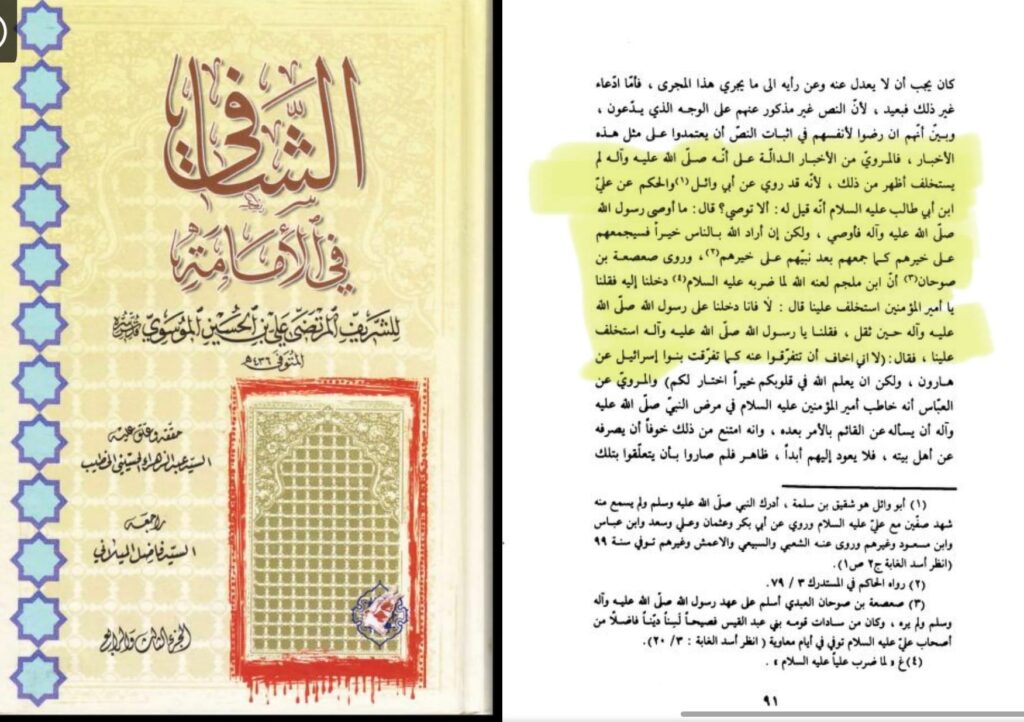 الشَّافي
في الأمامة
للشريف المرتضى علي بن الحسين الموسوي قدس سره
المتوفى ٤٣٦ هـ
حققه وعلق عليه
السيد عبد الزهراء الحسيني الخطيب
راجعه
السيد فاضل الميلاني
الجزء الثالث والرابع
كان يجب أن لا يعدل عنه وعن رأيه الى ما يجري هذا المجرى ، فأمّا ادّعاء
غير ذلك فبعيد ، لأنّ النص غير مذكور عنهم على الوجه الذي يدّعون ،
وبينّ انّهم ان رضوا لأنفسهم في اثبات النصّ أن يعتمدوا على مثل هذه
الأخبار ، فالمرويّ من الأخبار الدالّة على أنّه صلّى الله عليه وآله لم
يستخلف أظهر من ذلك ، لأنّه قد روي عن أبي وائل(١) والحكم عن عليّ
ابن أبي طالب عليه السلام أنّه قيل له : ألا توصي؟ قال : ما أوصى رسول الله
صلّى الله عليه وآله فأوصي ، ولكن إن أراد الله بالناس خيراً فسيجمعهم
على خيرهم كما جمعهم بعد نبيّهم على خيرهم(٢) ، وروى صعصعة بن
صوحان(٣) أنّ ابن ملجم لعنه الله لما ضربه عليه السلام(٤) دخلنا إليه فقلنا
يا أمير المؤمنين استخلف علينا قال : لا فانا دخلنا على رسول الله صلّى الله
عليه وآله حين ثقل ، فقلنا يا رسول الله صلّى الله عليه وآله استخلف
علينا ، فقال : (لا اني اخاف أن تتفرّقوا عنه كما تفرّقت بنوا إسرائيل عن
هارون ، ولكن ان يعلم الله في قلوبكم خيراً اختار لكم) والمرويّ عن
العبّاس أنه خاطب أمير المؤمنين عليه السلام في مرض النبيّ صلّى الله عليه
وآله أن يسأله عن القائم بالأمر بعده ، وانه امتنع من ذلك خوفاً أن يصرفه
عن أهل بيته ، فلا يعود إليهم أبداً ، ظاهر فلم صاروا بأن يتعلّقوا بتلك
(١) أبو وائل هو شقيق بن سلمة ، أدرك النبي صلّى الله عليه وسلم ولم يسمع منه
شهد صفّين مع عليّ عليه السلام وروي عن أبي بكر وعثمان وعلي وسعد وابن عباس
وابن مسعود وغيرهم وروى عنه الشعبي والسبيعي والاعمش وغيرهم توفي سنة ٩٩
(انظر أسد الغابة ج٢ ص١).
(٢) رواه الحاكم في المستدرك ٣ / ٧٩.
(٣) صعصعة بن صوحان العبدي أسلم على عهد رسول الله صلّى الله عليه وآله
وسلم ولم يره ، وكان من سادات قومه بني عبد القيس فصيحاً لَسِناً ديّناً فاضلاً من
أصحاب عليّ عليه السلام توفي في أيام معاوية ( انظر أسد الغابة : ٣ / ٢٠).
(٤) غ « لما ضرب علياً عليه السلام » .
٩١